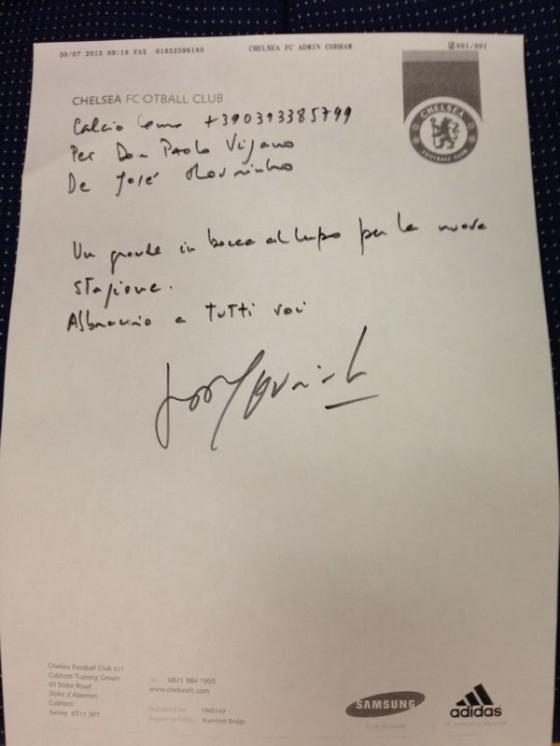 30/07 2013 09:18 FAX 01932596180 CHELSEA FC ADMIN COBHAM 001/001
CHELSEA FOOTBALL CLUB
CHELSEA
FOOTBALL CLUB
Calcio Como +390313385799
Per Don Paolo Vigano
De José Mourinho
Un grande in bocca al lupo per la nuova
stagione.
Abbraccio a tutti voi
Chelsea Football Club
Cobham Training Ground
60 Stoke Road
Stoke d'Abernon
Cobham
Surrey KT11 3PT
Tel: 0871 984 1955
www.chelseafc.com
Registered No: 1965149
Registered Office: Stamford Bridge
SAMSUNG
adidas